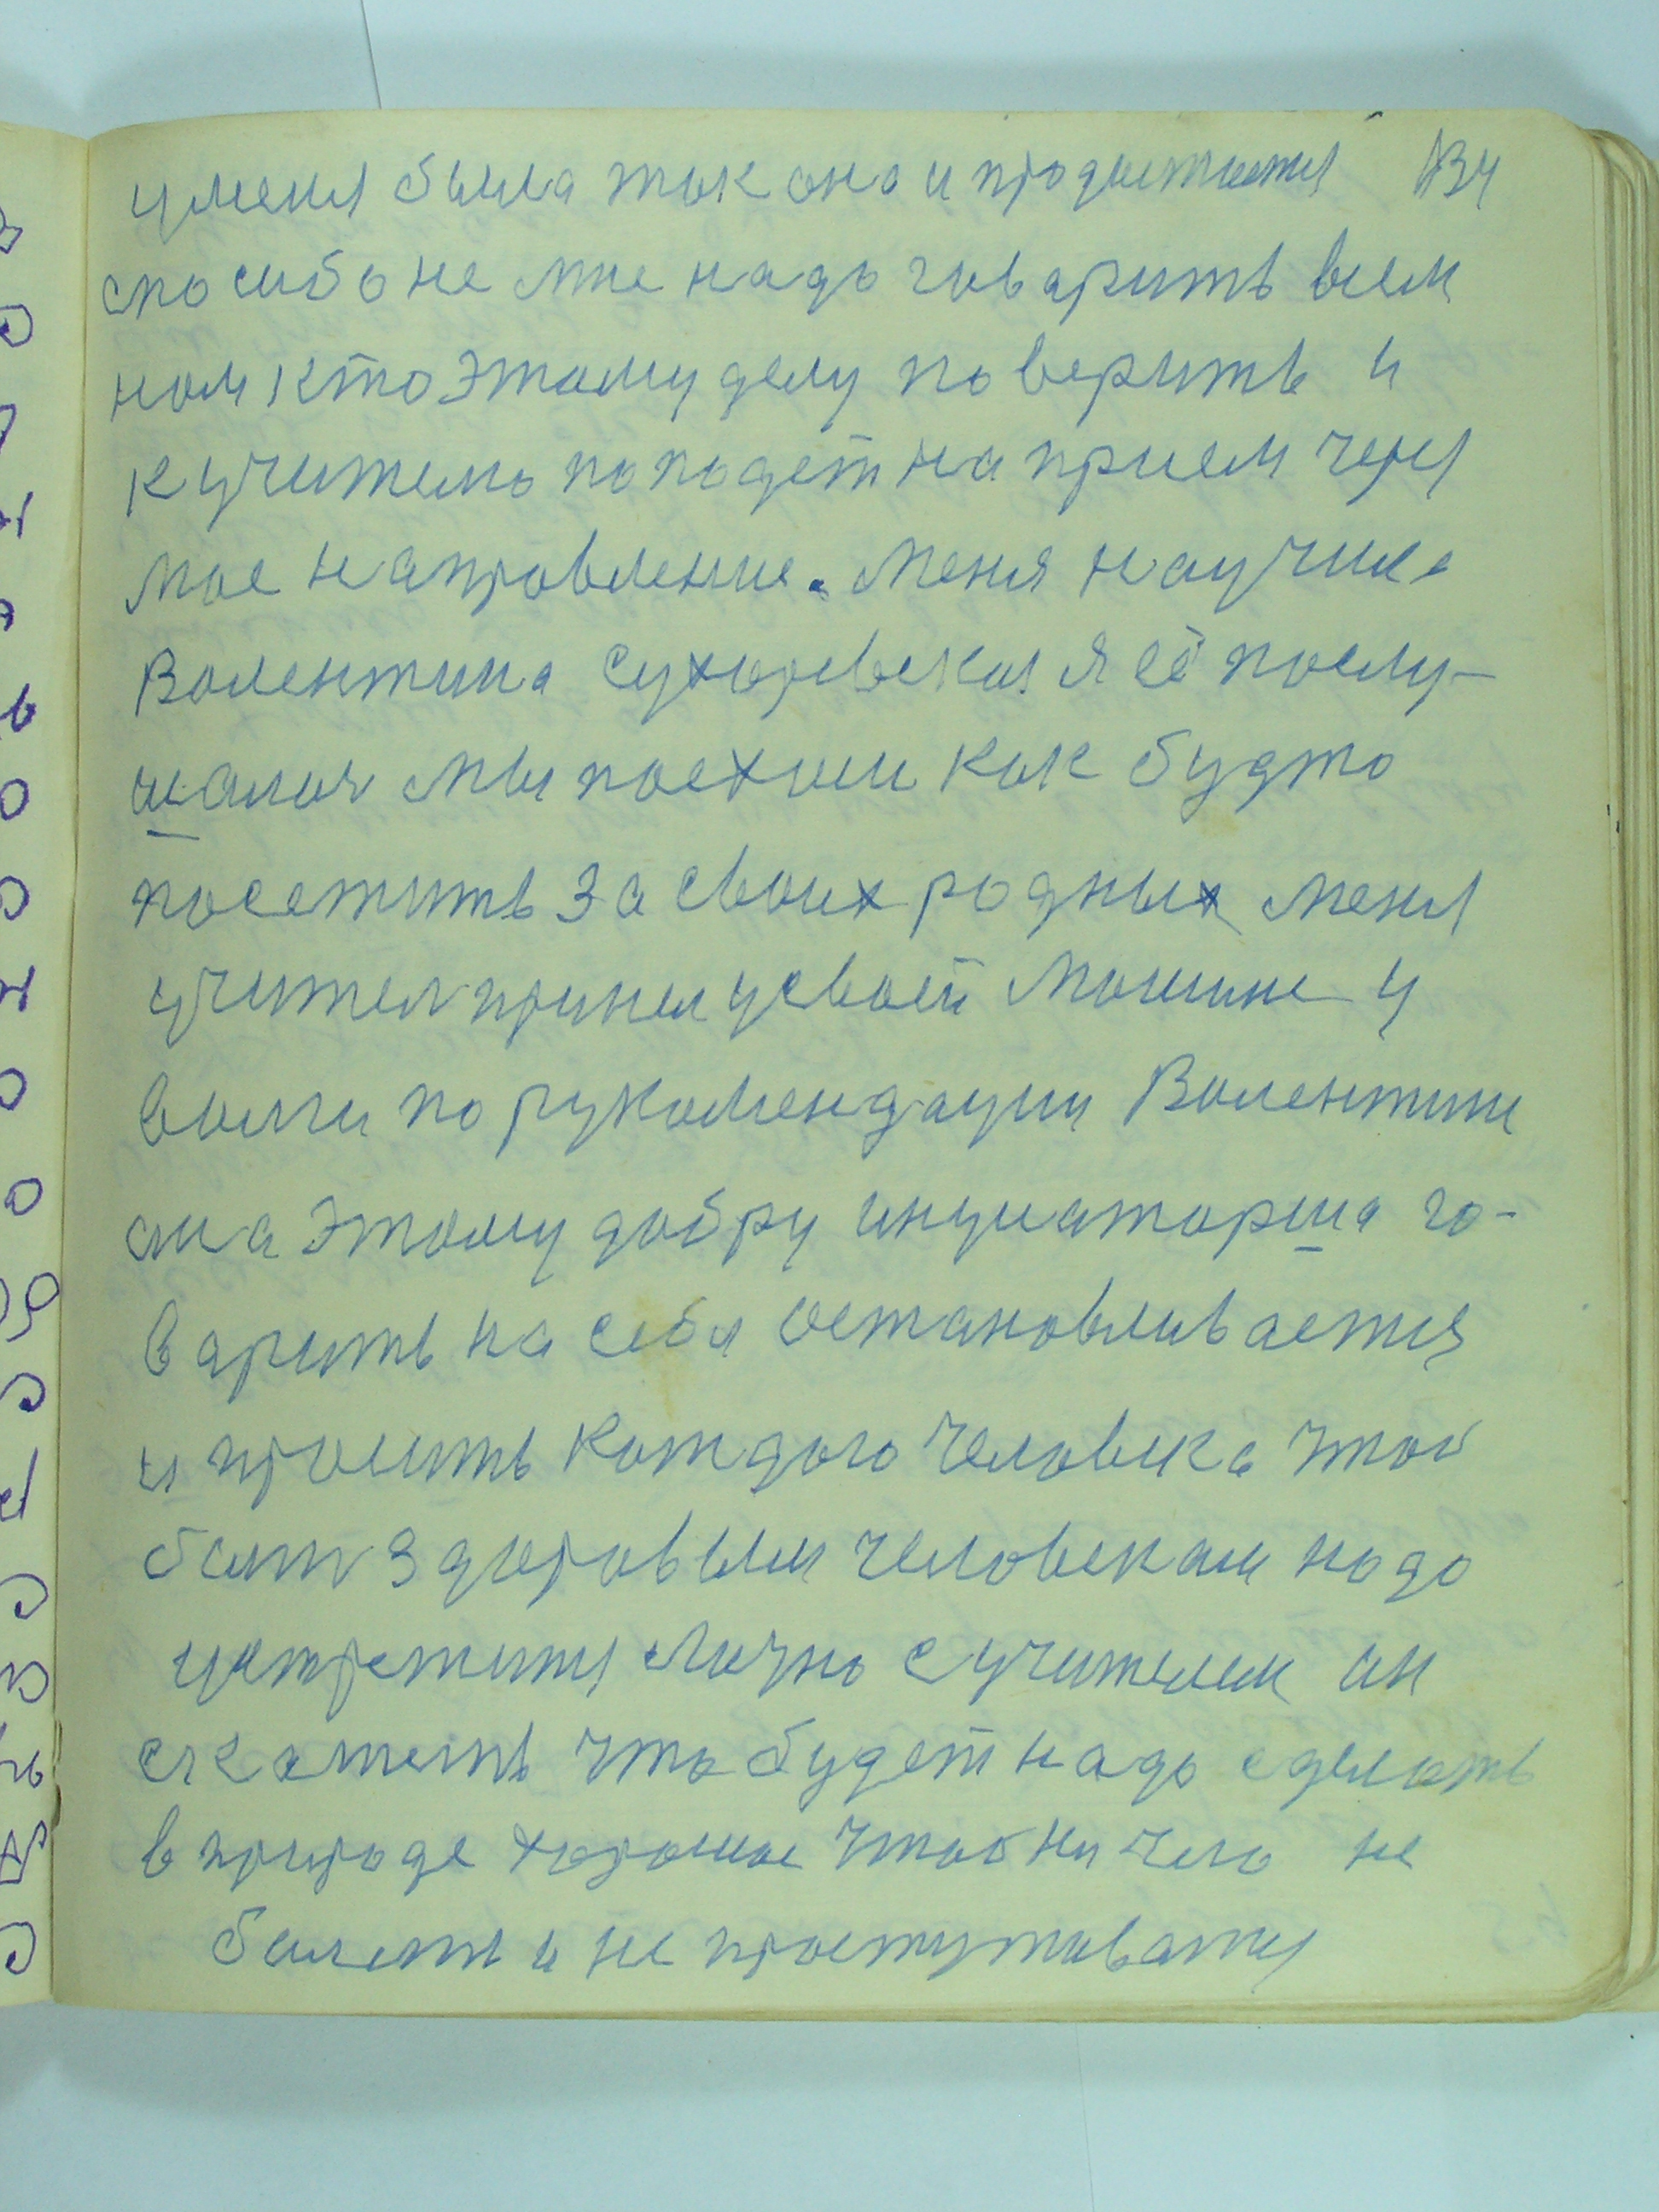 уменя была так она и продается 134
спосибо не мне надо говарить всем
ном кто этому делу поверить и
к учителю пападет на прием через
мое направление. Меня научила
Волентина Сухаревская я её послу-
шалоч мы поехали как будто
посетить за своих родных меня
учител принял усвоей Машине у
волги по рукамендации Волентини
она этому добру инциаторша го-
варить на себя остановливается
и просить каждого человека чтоб
быть здоровым человекам надо
устретится Лично сучителем он
скажеть что будет надо сделать
в природе хорошое чтоб ни чего не
балеть и не простуживатся